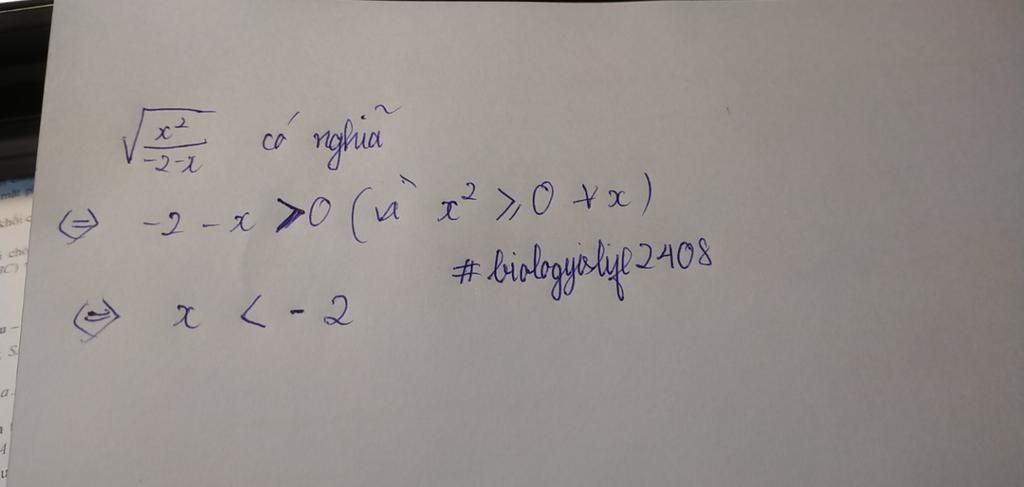 √(x²/(-2-x)) có nghĩa
⇔ -2 - x > 0 (vì x² ⩾ 0 ∀x)
#biologyislife2408
⇔ x < -2